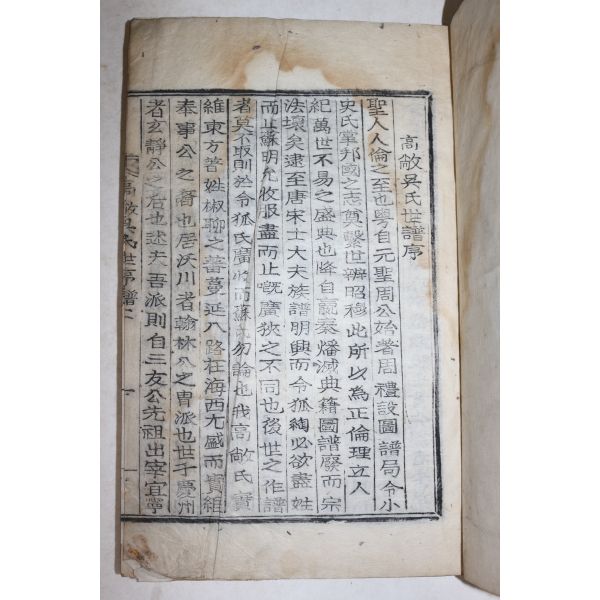 高敞吳氏世譜序
聖人人倫之至也粤自元聖周公始著周禮設圖譜局令小
史氏掌邦國之志奠繫世辨昭穆此所以為正倫理立人
紀萬世不易之盛典也降自嬴秦燔滅典籍圖譜廢而宗
法壞矣逮至唐宋士大夫族譜朋興而令狐綯必欲盡姓
而止蘇明允收服盡而止嘅廣狹之不同也後世之作譜
者莫不取則於令狐氏廣也而蘇氏勿論也我高敞氏實
維東方著姓椒聊之蕃蔓延八路在海西尤盛而實組
奉事公之
公之者也居沃川者翰林公之胄派也世于慶州
者玄靜公之居也述夫吾派則自三友公先祖出宰宜寧
高敞吳氏世譜